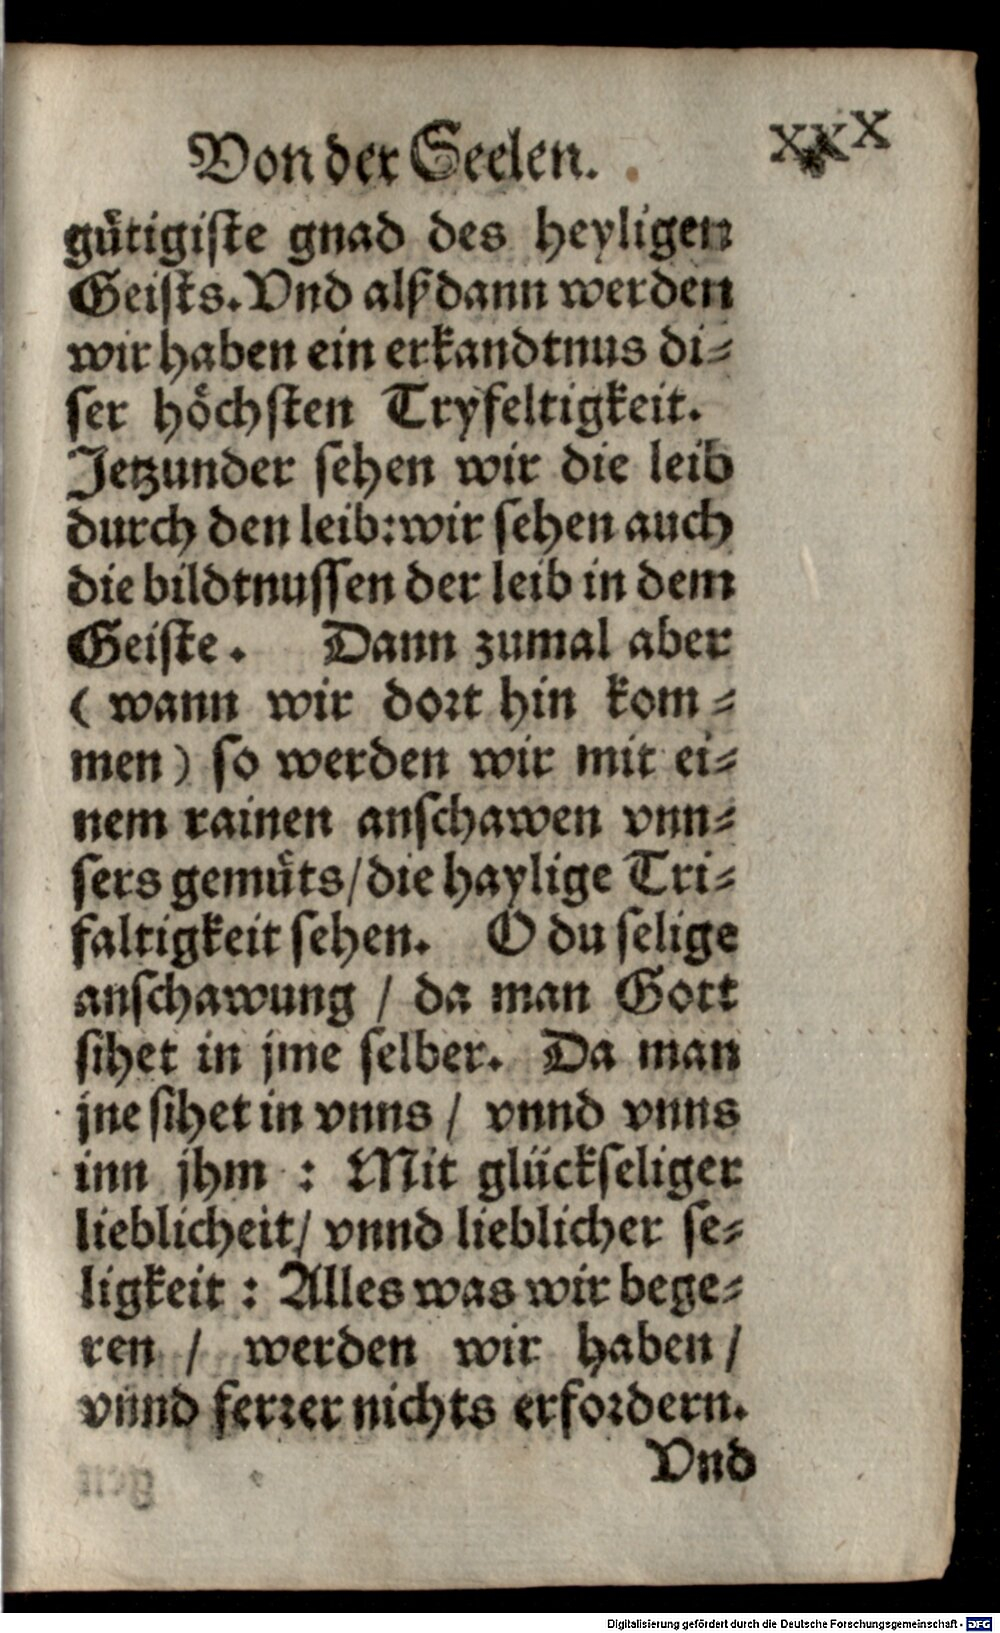 Von der Seelen. XXX
guͤtigiste gnad des heyligen
Geists. Vnd alßdann werden
wir haben ein erkandtnus di⸗
ser hoͤchsten Tryfeltigkeit.
Jetzunder sehen wir die leib
durch den leib: wir sehen auch
die bildtnussen der leib in dem
Geiste. Dann zumal aber
(wann wir dort hin kom⸗
men) so werden wir mit ei⸗
nem rainen anschawen vnn⸗
sers gemuͤts/ die haylige Tri⸗
faltigkeit sehen. O du selige
anschawung / da man Gott
sihet in jme selber. Da man
jne sihet in vnns / vnnd vnns
inn jhm : Mit glückseliger
lieblicheit/ vnnd lieblicher se⸗
ligkeit : Alles was wir bege⸗
ren / werden wir haben /
vnnd ferrer nichts erfordern.
Vnd
Digitalisierung gefördert durch die Deutsche Forschungsgemeinschaft - DFG